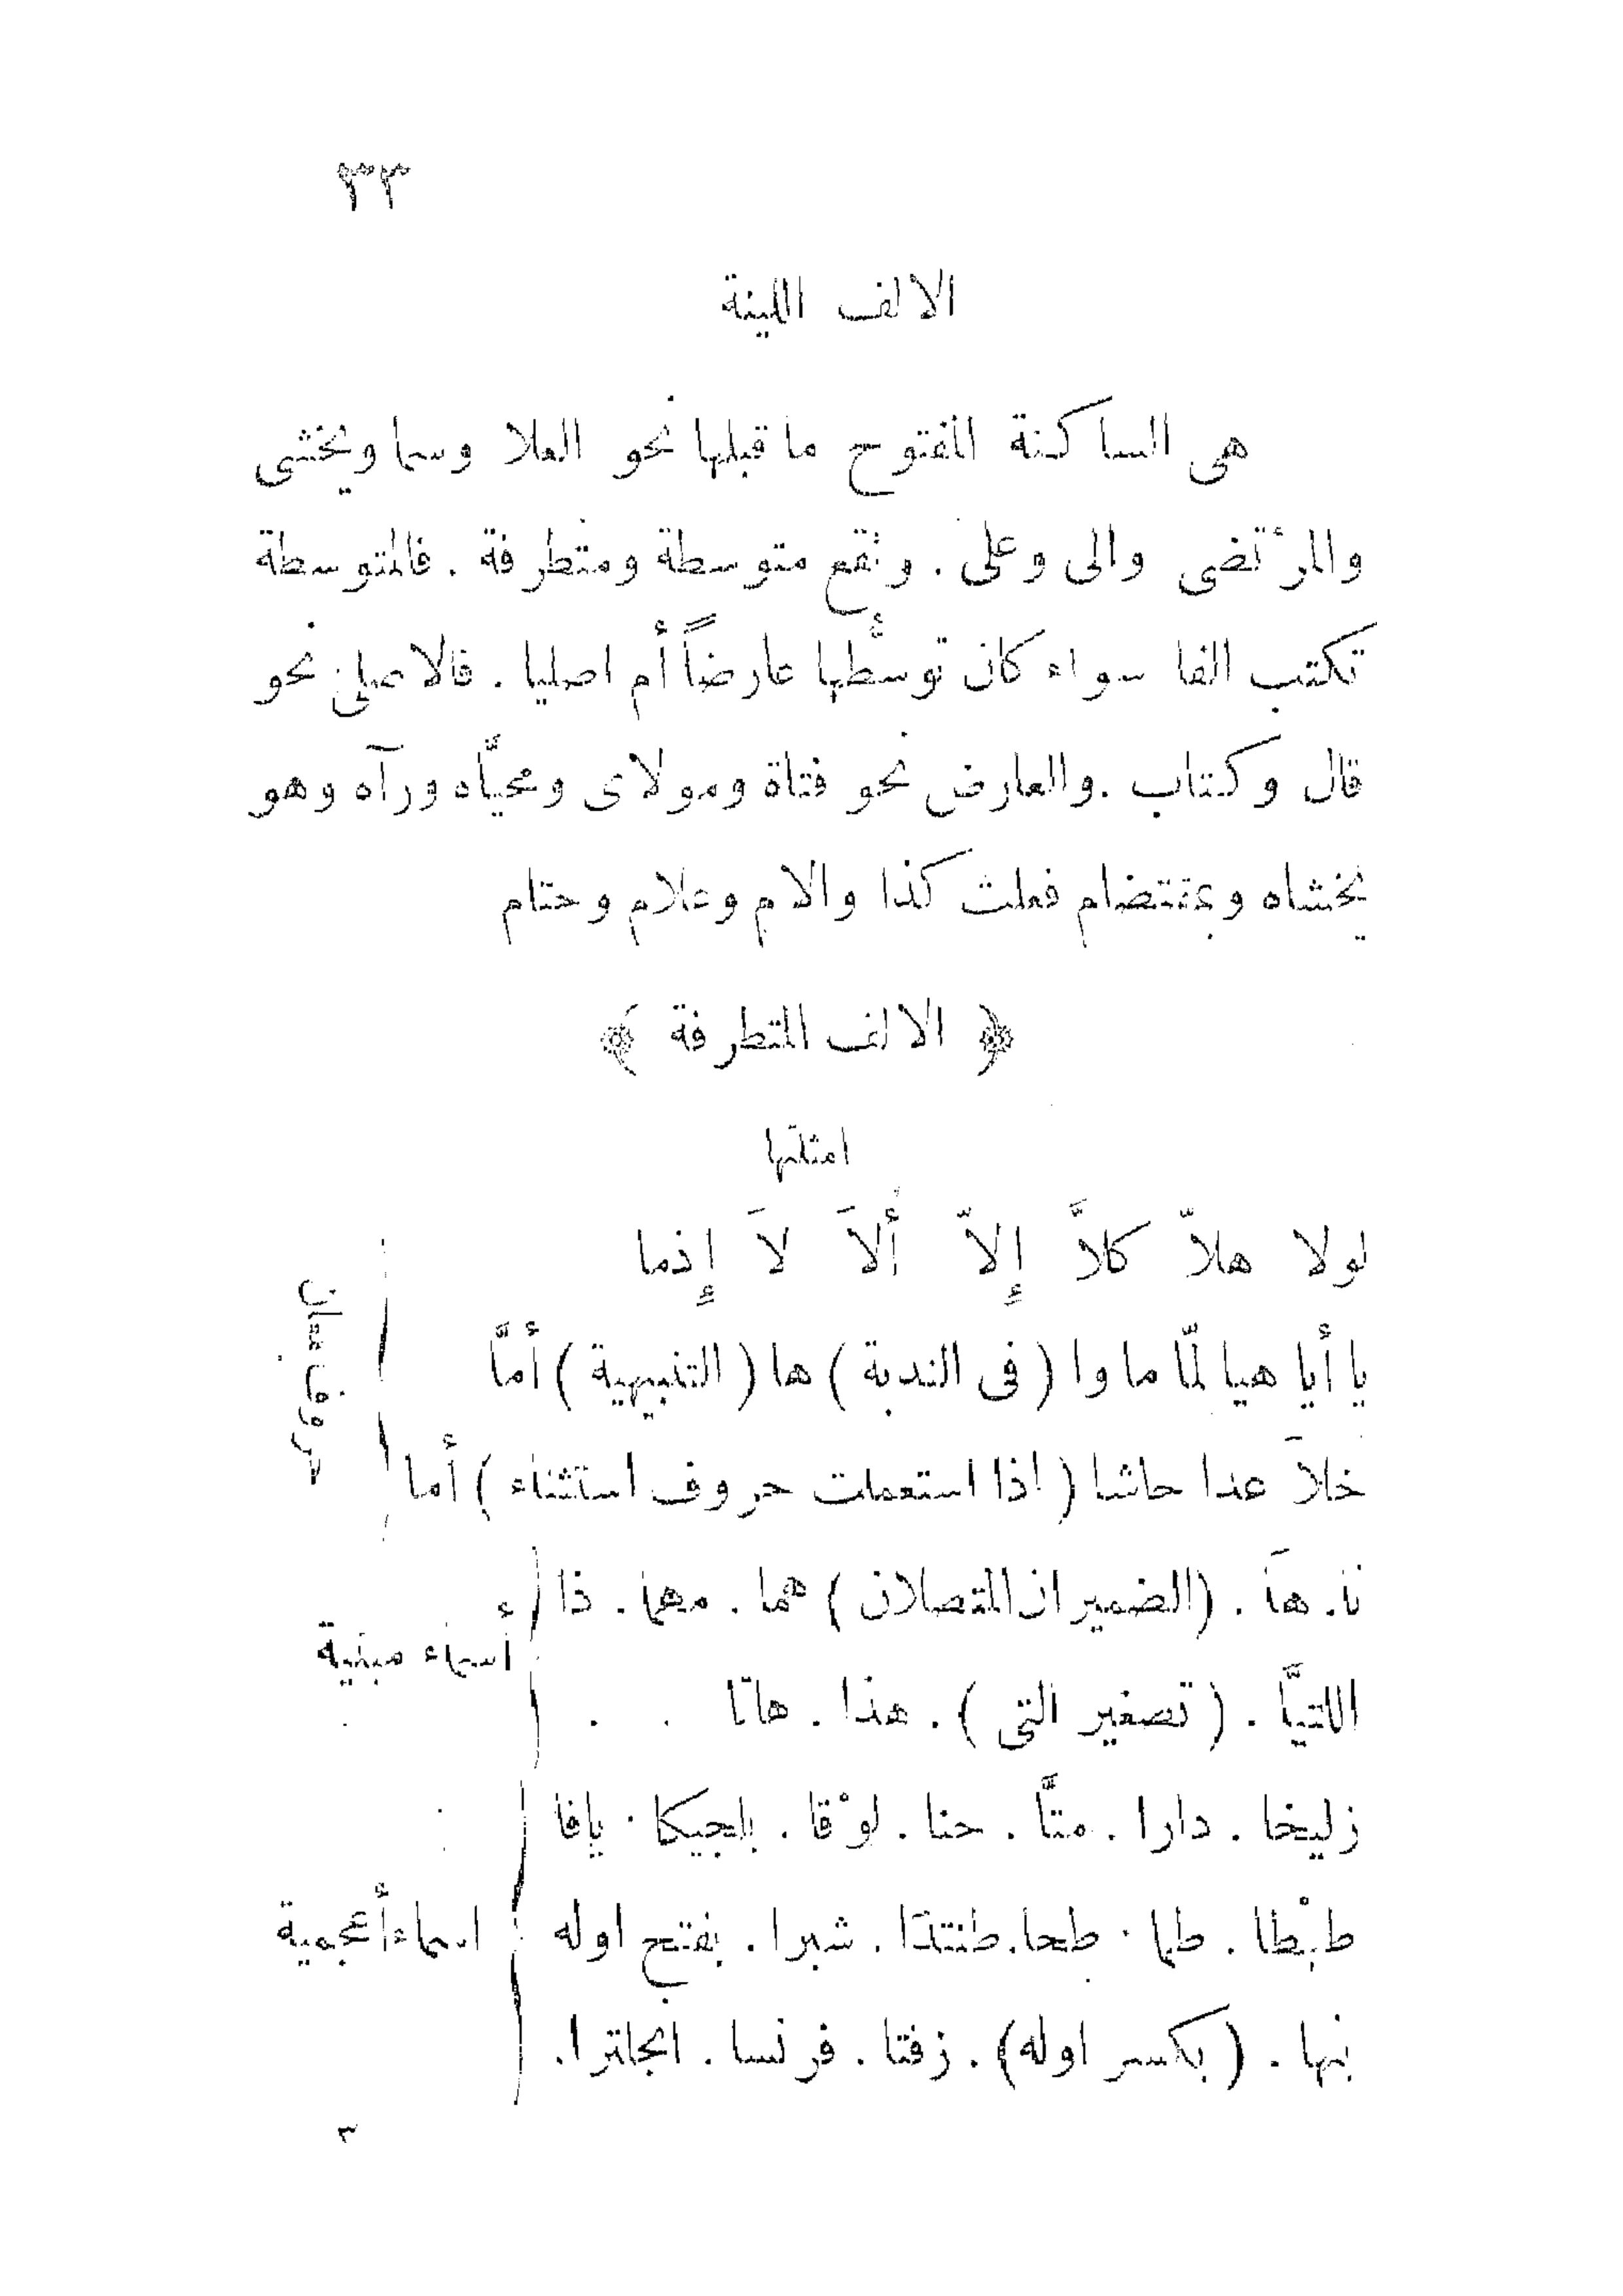 ٣٣
الالف اللينة
هى الساكنة المفتوح ما قبلها نحو العلا وسما ويخشى
والمرْتضى والى وعلى . وتقع متوسطة ومتطرفة . فالمتوسطة
تكتب الفا سواء كان توسُّطها عارضاً أم اصليا . فالاصلى نحو
قال وكتاب . والعارض نحو فتاة ومولاى ومحيَّاه ورآه وهو
يخشاه وبمقتضام فعلت كذا والام وعلام وحتام
﴿ الالف المتطرفة ﴾
امثلتها
لولا هلاّ كلاَّ إِلاّ ألاَ لاَ إِذما
يا أيا هيا لمّا ما وا ( فى الندبة ) ها ( التنبيهية ) أمَّا
خلاَ عدا حاشا ( اذا استعملت حروف استثناء ) أما
حروف معان
نا . هَا . (الضميران المتصلان ) هما . مهما . ذا
أسماء مبنية
اللتيَّا . ( تصغير التى ) . هذا . هاتا
زليخا . دارا . متَّا . حنا . لوْقا . بلجيكا . يافا
طبْطا . طما . طحا . طنتدَا . شبرا . بفتح اوله
اسماء أعجمية
بنها . ( بكسر اوله) . زفتا . فرنسا . انجلترا .
٣